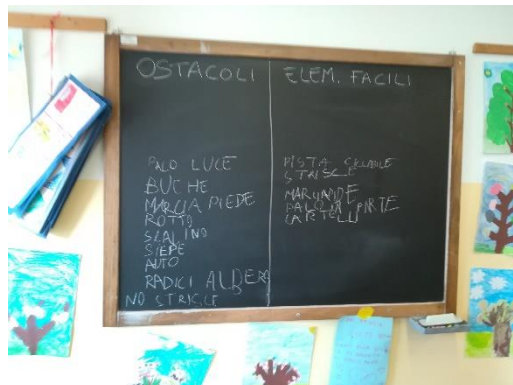 OSTACOLI
PALO LUCE
BUCHE
MARCIA PIEDE
ROTTO
SCALINO
SIEPE
AUTO
RADICI ALBERO
NO STRISCE
ELEM. FACILI
PISTA CICLABILE
STRISCE
MARCIAPIEDE
PALO IN PARTE
CARTELLI